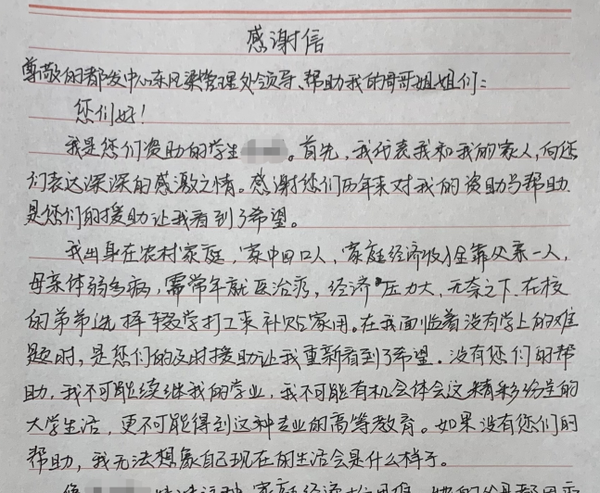 感谢信
尊敬的都发中心东风渠管理处领导、帮助我的哥哥姐姐们:
您们好!
我是您们资助的学生 。首先,我代表我和我的家人,向您
们表达深深的感激之情。感谢您们历年来对我的资助与帮助,
是您们的援助让我看到了希望。
我出身在农村家庭,家中四口人,家庭经济收全靠父亲一人,
母亲体弱多病,需常年就医治疗,经济压力大,无奈之下,在校
的弟弟选择辍学打工来补贴家用。在我面临着没有学上的难
题时,是您们的及时援助让我重新看到了希望。没有您们的帮
助,我不可能继续我的学业,我不可能有机会体会这精彩纷呈的
大学生活,更不可能得到这种专业的高等教育。如果没有您们的
帮助,我无法想象自己现在的生活会是什么样子。